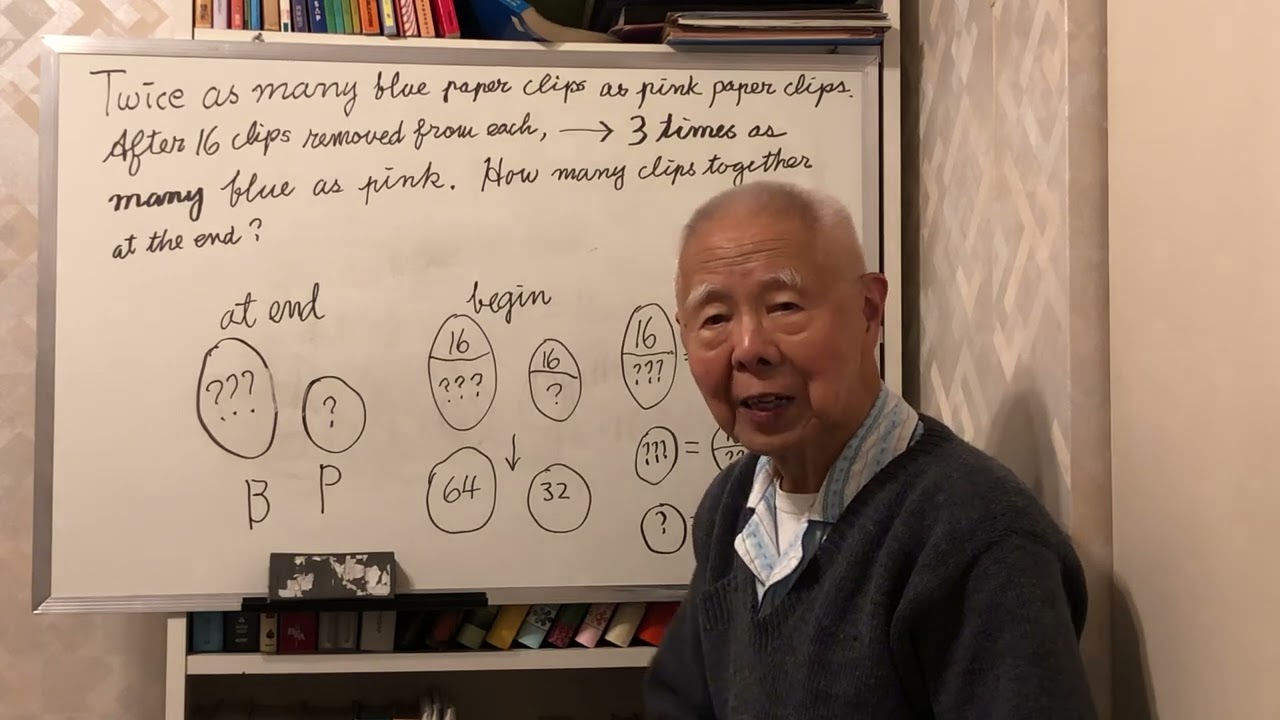 Twice as many blue paper clips as pink paper clips.
After 16 clips removed from each, → 3 times as
many blue as pink. How many clips together
at the end?
at end
begin
???
?
B
P
16
???
16
?
64
32
16
???
??? =
?